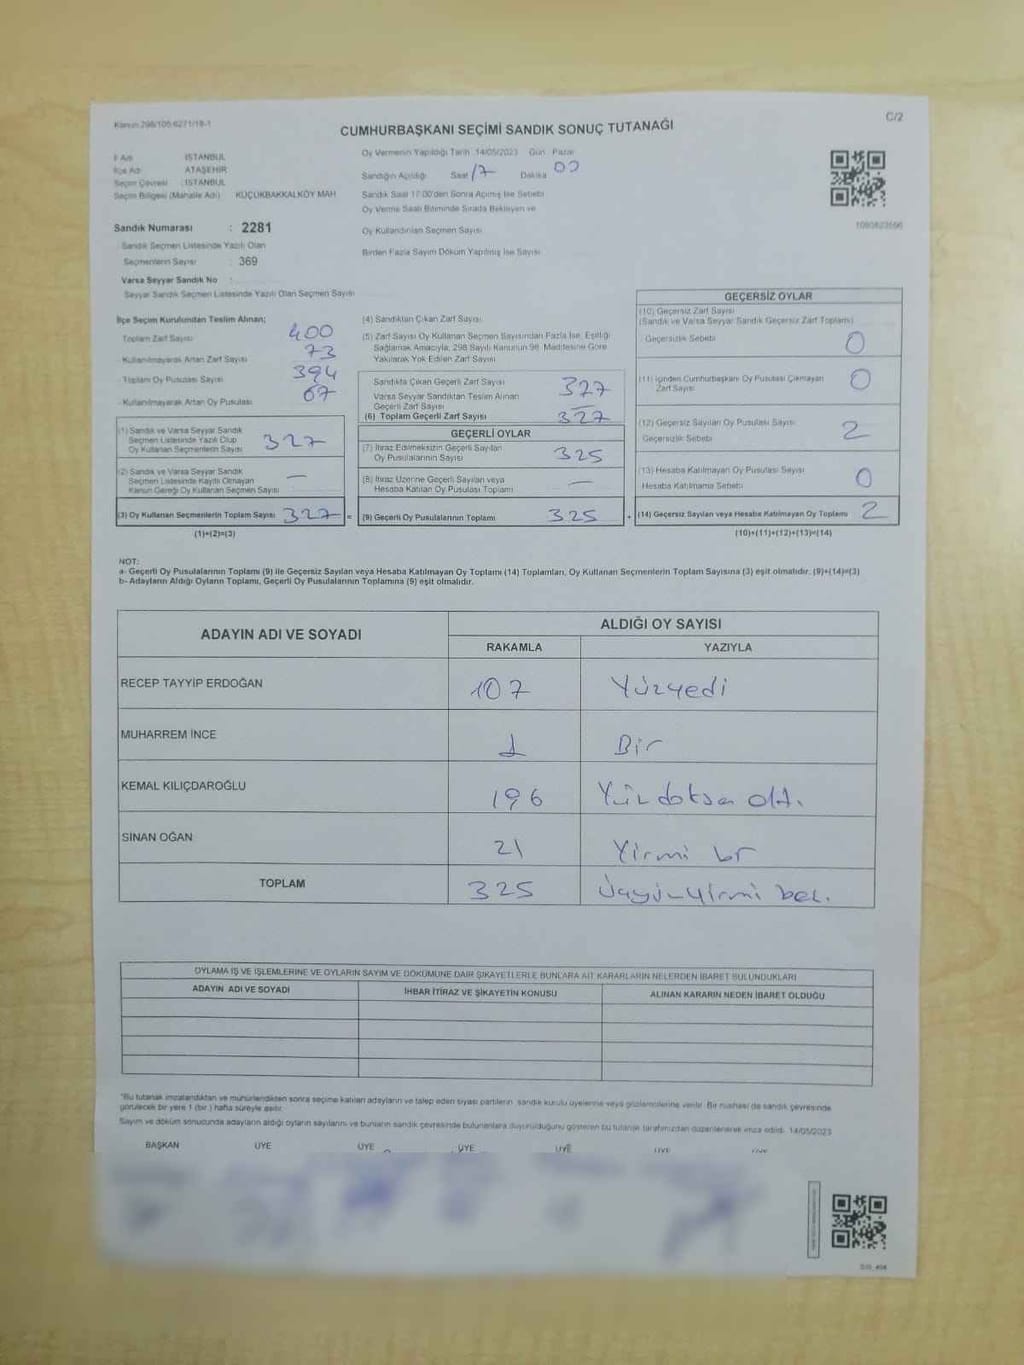 C/2
CUMHURBAŞKANI SEÇİMİ SANDIK SONUÇ TUTANAĞI
İl Adı : İSTANBUL
İlçe Adı : ATAŞEHİR
Seçim Çevresi : İSTANBUL
Seçim Bölgesi (Mahalle Adı) : KÜÇÜKBAKKALKÖY MAH
Sandık Numarası : 2281
Sandık Seçmen Listesinde Yazılı Olan
Seçmenlerin Sayısı : 369
Varsa Seyyar Sandık No :
Seyyar Sandık Seçmen Listesinde Yazılı Olan Seçmen Sayısı
Oy Vermenin Yapıldığı Tarih 14/05/2023 Gün Pazar
Sandığın Açıldığı Saat 17 Dakika 00
Sandık Saat 17:00'den Sonra Açılmış İse Sebebi
Oy Verme Saati Bitiminde Sırada Bekleyen ve
Oy Kullandırılan Seçmen Sayısı
Birden Fazla Sayım Döküm Yapılmış İse Sayısı
İlçe Seçim Kurulundan Teslim Alınan;
Toplam Zarf Sayısı 400
Kullanılmayarak Artan Zarf Sayısı 73
Toplam Oy Pusulası Sayısı 394
Kullanılmayarak Artan Oy Pusulası 67
(1) Sandık ve Varsa Seyyar Sandık
Seçmen Listesinde Yazılı Olup
Oy Kullanan Seçmenlerin Sayısı 327
(2) Sandık ve Varsa Seyyar Sandık
Seçmen Listesinde Kayıtlı Olmayan
Kanun Gereği Oy Kullanan Seçmen Sayısı —
(3) Oy Kullanan Seçmenlerin Toplam Sayısı 327 =
(1)+(2)=(3)
(4) Sandıktan Çıkan Zarf Sayısı
(5) Zarf Sayısı Oy Kullanan Seçmen Sayısından Fazla İse, Eşitliği
Sağlamak Amacıyla, 298 Sayılı Kanunun 98. Maddesine Göre
Yakılarak Yok Edilen Zarf Sayısı
Sandıkta Çıkan Geçerli Zarf Sayısı 327
Varsa Seyyar Sandıktan Teslim Alınan
Geçerli Zarf Sayısı —
(6) Toplam Geçerli Zarf Sayısı 327
GEÇERLİ OYLAR
(7) İtiraz Edilmeksizin Geçerli Sayılan
Oy Pusulalarının Sayısı 325
(8) İtiraz Üzerine Geçerli Sayılan veya
Hesaba Katılan Oy Pusulası Toplamı —
(9) Geçerli Oy Pusulalarının Toplamı 325 +
GEÇERSİZ OYLAR
(10) Geçersiz Zarf Sayısı
(Sandık ve Varsa Seyyar Sandık Geçersiz Zarf Toplamı)
Geçersizlik Sebebi 0
(11) İçinden Cumhurbaşkanı Oy Pusulası Çıkmayan
Zarf Sayısı 0
(12) Geçersiz Sayılan Oy Pusulası Sayısı
Geçersizlik Sebebi 2
(13) Hesaba Katılmayan Oy Pusulası Sayısı
Hesaba Katılmama Sebebi 0
(14) Geçersiz Sayılan veya Hesaba Katılmayan Oy Toplamı 2
(10)+(11)+(12)+(13)=(14)
NOT:
a- Geçerli Oy Pusulalarının Toplamı (9) ile Geçersiz Sayılan veya Hesaba Katılmayan Oy Toplamı (14) Toplamları, Oy Kullanan Seçmenlerin Toplam Sayısına (3) eşit olmalıdır. (9)+(14)=(3)
b- Adayların Aldığı Oyların Toplamı, Geçerli Oy Pusulalarının Toplamına (9) eşit olmalıdır.
ADAYIN ADI VE SOYADI
ALDIĞI OY SAYISI
RAKAMLA YAZIYLA
RECEP TAYYİP ERDOĞAN 107 Yüzyedi
MUHARREM İNCE 1 Bir
KEMAL KILIÇDAROĞLU 196 Yüz doksan altı
SİNAN OĞAN 21 Yirmi bir
TOPLAM 325 Üçyüzyirmi beş.
OYLAMA İŞ VE İŞLEMLERİNE VE OYLARIN SAYIM VE DÖKÜMÜNE DAİR ŞİKAYETLERLE BUNLARA AİT KARARLARIN NELERDEN İBARET BULUNDUKLARI
ADAYIN ADI VE SOYADI İHBAR İTİRAZ VE ŞİKAYETİN KONUSU ALINAN KARARIN NEDEN İBARET OLDUĞU
"Bu tutanak imzalandıktan ve mühürlendikten sonra seçime katılan adayların ve talep eden siyasi partilerin sandık kurulu üyelerine veya gözlemcilerine verilir. Bir nüshası da sandık çevresinde
görülecek bir yere 1 (bir) hafta süreyle asılır.
Sayım ve döküm sonucunda adayların aldığı oyların sayılarını ve bunların sandık çevresinde bulunanlara duyurulduğunu gösteren bu tutanak tarafımızdan düzenlenerek imza edildi. 14/05/2023
BAŞKAN ÜYE ÜYE ÜYE ÜYE ÜYE ÜYE